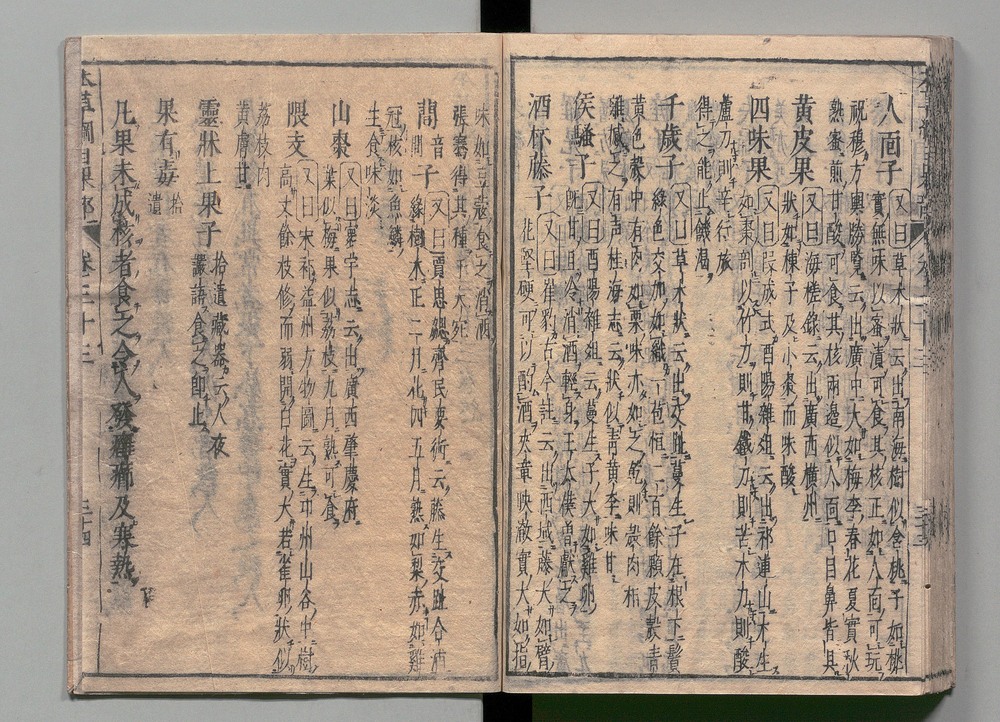 人面子 又曰草木狀云出南海樹似含桃子如桃
實無味以蜜漬可食其核正如人面可玩
祝穆方輿勝覽云出廣中大如梅李春花夏實秋
熟蜜煎甘酸可食其核兩邊似人面口目鼻皆具
黃皮果 又曰海槎錄云出廣西橫州
狀如楝子及小棗而味酸
四味果 又曰段成式酉陽雜俎云出祁連山木生
如棗剖以竹刀則甘鐵刀則苦木刀則酸
蘆刀則辛行旅
得之能止饑渴
千歲子 又曰草木狀云出交趾蔓生子在根下鬚
綠色交加如織一苞恒二百餘顆皮殼青
黃色殼中有肉如栗味亦如之乾則殼肉相
離撼之有声桂海志云狀似青黃李味甘
侯騷子 又曰酉陽雜俎云蔓生子大如雞卵
既甘且冷消酒輕身王太僕曽獻之
酒杯藤子 又曰崔豹古今註云出西域藤大如臂
花堅硬可以酌酒文章映澈實大如指
味如豆蔻食之消酒
張騫得其種于大宛
䕡子 音間 又曰賈思勰齊民要術云藤生交趾合浦
緣樹木正二月花四五月熟如梨赤如雞
冠核如魚鱗
生食味淡
山棗 又曰寰宇志云出廣西肇慶府
葉似梅果似荔枝九月熟可食
隈支 又曰宋祁益州方物圖云生卭州山谷中樹
高丈餘枝修而弱開白花實大若雀卵狀似
荔枝肉
黃膚甘
靈牀上果子 拾遺藏器云人夜
讝語食之即止
果有毒 拾
遺
凡果未成核者食之令人發癰癤及寒熱
本草綱目果部 卷三十三 三十四